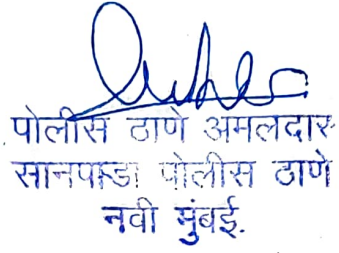 पोलीस ठाणे अमलदार
सानपाडा पोलीस ठाणे
नवी मुंबई.